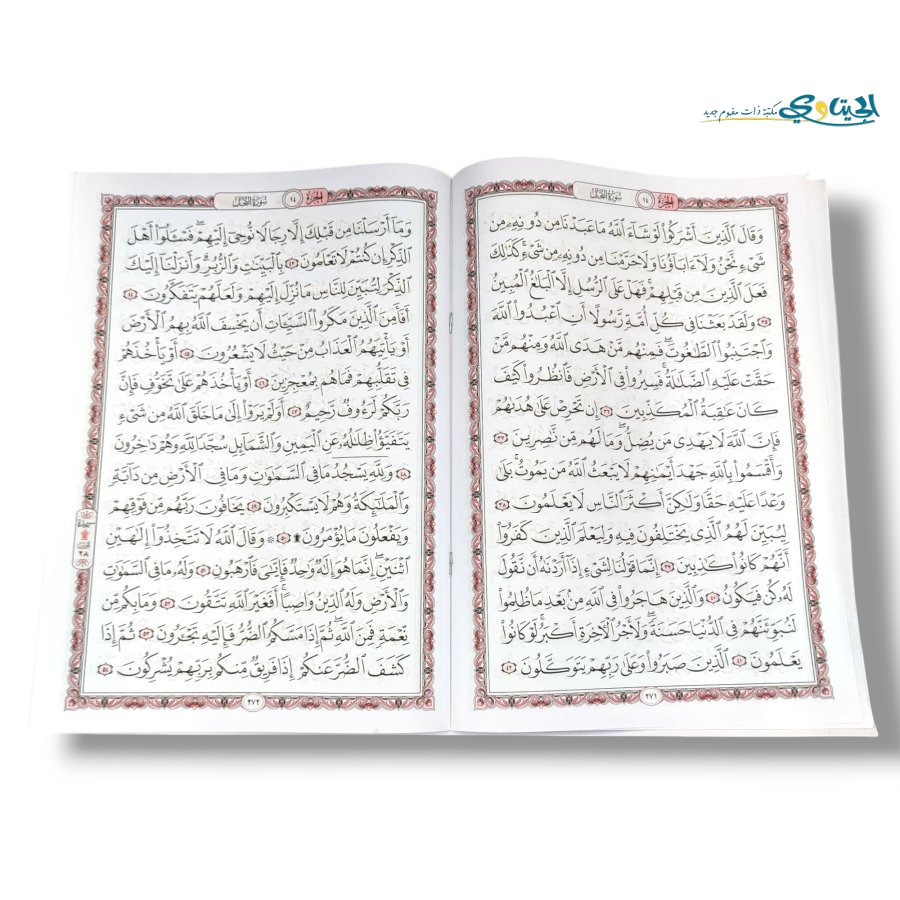 الجيتاوي
مكتبة ذات مفهوم جديد
الجزء ١٤ سورة النحل
وَقَالَ ٱلَّذِينَ أَشْرَكُواْ لَوْ شَآءَ ٱللَّهُ مَا عَبَدْنَا مِن دُونِهِۦ مِن
شَىْءٍ نَّحْنُ وَلَآ ءَابَآؤُنَا وَلَا حَرَّمْنَا مِن دُونِهِۦ مِن شَىْءٍ كَذَٰلِكَ
فَعَلَ ٱلَّذِينَ مِن قَبْلِهِمْ فَهَلْ عَلَى ٱلرُّسُلِ إِلَّا ٱلْبَلَٰغُ ٱلْمُبِينُ
٣٥ وَلَقَدْ بَعَثْنَا فِى كُلِّ أُمَّةٍ رَّسُولًا أَنِ ٱعْبُدُواْ ٱللَّهَ
وَٱجْتَنِبُواْ ٱلطَّٰغُوتَ فَمِنْهُم مَّنْ هَدَى ٱللَّهُ وَمِنْهُم مَّنْ
حَقَّتْ عَلَيْهِ ٱلضَّلَٰلَةُ فَسِيرُواْ فِى ٱلْأَرْضِ فَٱنظُرُواْ كَيْفَ
كَانَ عَٰقِبَةُ ٱلْمُكَذِّبِينَ ٣٦ إِن تَحْرِصْ عَلَىٰ هُدَىٰهُمْ
فَإِنَّ ٱللَّهَ لَا يَهْدِى مَن يُضِلُّ وَمَا لَهُم مِّن نَّٰصِرِينَ ٣٧
وَأَقْسَمُواْ بِٱللَّهِ جَهْدَ أَيْمَٰنِهِمْ لَا يَبْعَثُ ٱللَّهُ مَن يَمُوتُ بَلَىٰ
وَعْدًا عَلَيْهِ حَقًّا وَلَٰكِنَّ أَكْثَرَ ٱلنَّاسِ لَا يَعْلَمُونَ ٣٨
لِيُبَيِّنَ لَهُمُ ٱلَّذِى يَخْتَلِفُونَ فِيهِ وَلِيَعْلَمَ ٱلَّذِينَ كَفَرُوٓاْ
أَنَّهُمْ كَانُواْ كَٰذِبِينَ ٣٩ إِنَّمَا قَوْلُنَا لِشَىْءٍ إِذَآ أَرَدْنَٰهُ أَن نَّقُولَ
لَهُۥ كُن فَيَكُونُ ٤٠ وَٱلَّذِينَ هَاجَرُواْ فِى ٱللَّهِ مِنۢ بَعْدِ مَا ظُلِمُواْ
لَنُبَوِّئَنَّهُمْ فِى ٱلدُّنْيَا حَسَنَةً وَلَأَجْرُ ٱلْأٓخِرَةِ أَكْبَرُ لَوْ كَانُواْ
يَعْلَمُونَ ٤١ ٱلَّذِينَ صَبَرُواْ وَعَلَىٰ رَبِّهِمْ يَتَوَكَّلُونَ ٤٢
٢٧١
الجزء ١٤ سورة النحل
وَمَآ أَرْسَلْنَا مِن قَبْلِكَ إِلَّا رِجَالًا نُّوحِىٓ إِلَيْهِمْ فَسْـَٔلُوٓاْ أَهْلَ
ٱلذِّكْرِ إِن كُنتُمْ لَا تَعْلَمُونَ ٤٣ بِٱلْبَيِّنَٰتِ وَٱلزُّبُرِ وَأَنزَلْنَآ إِلَيْكَ
ٱلذِّكْرَ لِتُبَيِّنَ لِلنَّاسِ مَا نُزِّلَ إِلَيْهِمْ وَلَعَلَّهُمْ يَتَفَكَّرُونَ ٤٤
أَفَأَمِنَ ٱلَّذِينَ مَكَرُواْ ٱلسَّيِّـَٔاتِ أَن يَخْسِفَ ٱللَّهُ بِهِمُ ٱلْأَرْضَ
أَوْ يَأْتِيَهُمُ ٱلْعَذَابُ مِنْ حَيْثُ لَا يَشْعُرُونَ ٤٥ أَوْ يَأْخُذَهُمْ
فِى تَقَلُّبِهِمْ فَمَا هُم بِمُعْجِزِينَ ٤٦ أَوْ يَأْخُذَهُمْ عَلَىٰ تَخَوُّفٍ فَإِنَّ
رَبَّكُمْ لَرَءُوفٌ رَّحِيمٌ ٤٧ أَوَلَمْ يَرَوْاْ إِلَىٰ مَا خَلَقَ ٱللَّهُ مِن شَىْءٍ
يَتَفَيَّؤُاْ ظِلَٰلُهُۥ عَنِ ٱلْيَمِينِ وَٱلشَّمَآئِلِ سُجَّدًا لِّلَّهِ وَهُمْ دَٰخِرُونَ
٤٨ وَلِلَّهِ يَسْجُدُ مَا فِى ٱلسَّمَٰوَٰتِ وَمَا فِى ٱلْأَرْضِ مِن دَآبَّةٍ
وَٱلْمَلَٰٓئِكَةُ وَهُمْ لَا يَسْتَكْبِرُونَ ٤٩ يَخَافُونَ رَبَّهُم مِّن فَوْقِهِمْ
وَيَفْعَلُونَ مَا يُؤْمَرُونَ ۩ ٥٠ ۞ وَقَالَ ٱللَّهُ لَا تَتَّخِذُوٓاْ إِلَٰهَيْنِ
ٱثْنَيْنِ إِنَّمَا هُوَ إِلَٰهٌ وَٰحِدٌ فَإِيَّٰىَ فَٱرْهَبُونِ ٥١ وَلَهُۥ مَا فِى ٱلسَّمَٰوَٰتِ
وَٱلْأَرْضِ وَلَهُ ٱلدِّينُ وَاصِبًا أَفَغَيْرَ ٱللَّهِ تَتَّقُونَ ٥٢ وَمَا بِكُم مِّن
نِّعْمَةٍ فَمِنَ ٱللَّهِ ثُمَّ إِذَا مَسَّكُمُ ٱلضُّرُّ فَإِلَيْهِ تَجْـَٔرُونَ ٥٣ ثُمَّ إِذَا
كَشَفَ ٱلضُّرَّ عَنكُمْ إِذَا فَرِيقٌ مِّنكُم بِرَبِّهِمْ يُشْرِكُونَ ٥٤
سجدة
٢٨
٢٧٢